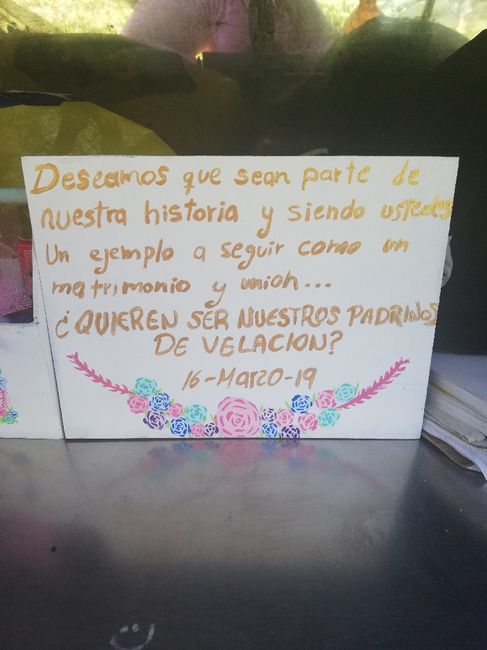 Deseamos que sean parte de
nuestra historia y siendo ustedes
Un ejemplo a seguir como un
matrimonio y unioh...
¿QUIEREN SER NUESTROS PADRINOS
DE VELACION?
16-Marzo-19